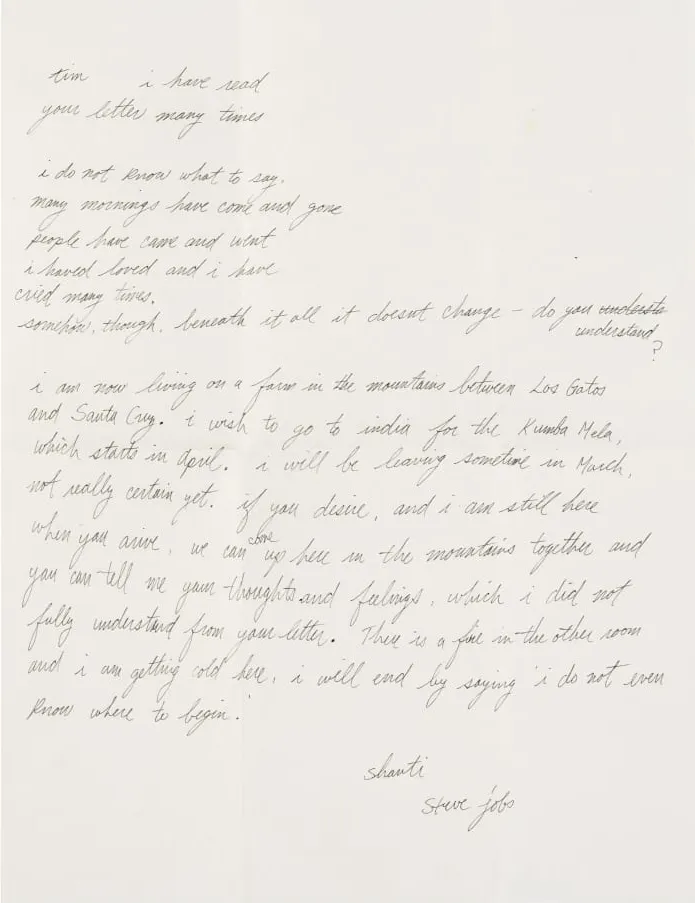 tim i have read
your letter many times
i do not know what to say.
many mornings have come and gone
people have came and went
i haved loved and i have
cried many times.
somehow, though, beneath it all it doesnt change – do you understa
understand
?
i am now living on a farm in the mountains between Los Gatos
and Santa Cruz. i wish to go to india for the Kumba Mela,
which starts in april. i will be leaving sometime in March,
not really certain yet. if you desire, and i am still here
when you arive, we can come up here in the mountains together and
you can tell me your thoughts and feelings, which i did not
fully understand from your letter. There is a fire in the other room
and i am getting cold here. i will end by saying 'i do not even
know where to begin.'
shanti
steve jobs